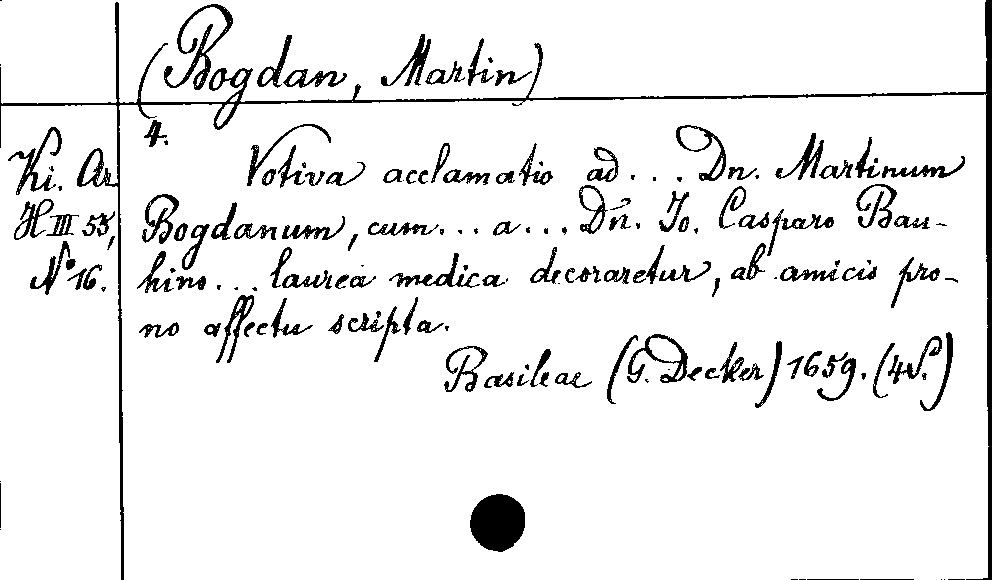 (Bogdan, Martin)
4.
Ki. Ar
H III 53,
No 16.
Votiva acclamatio ad... Dn. Martinum
Bogdanum, cum... a... Dn. Jo. Casparo Bau-
hino... laurea medica decoraretur, ab amicis pro-
no affectu scripta.
Basileae (G. Decker) 1659. (4 S.)